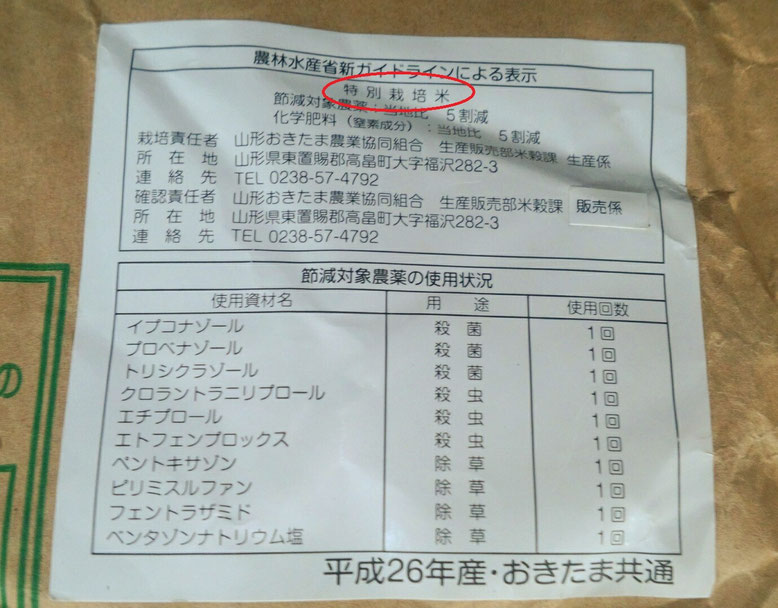 農林水産省新ガイドラインによる表示
特別栽培米
節減対象農薬：当地比 5割減
化学肥料（窒素成分）：当地比 5割減
栽培責任者 山形おきたま農業協同組合 生産販売部米穀課 生産係
所在地 山形県東置賜郡高畠町大字福沢282-3
連絡先 TEL 0238-57-4792
確認責任者 山形おきたま農業協同組合 生産販売部米穀課 販売係
所在地 山形県東置賜郡高畠町大字福沢282-3
連絡先 TEL 0238-57-4792
節減対象農薬の使用状況
使用資材名 用途 使用回数
イプコナゾール 殺菌 1回
プロベナゾール 殺菌 1回
トリシクラゾール 殺菌 1回
クロラントラニリプロール 殺虫 1回
エチプロール 殺虫 1回
エトフェンプロックス 殺虫 1回
ペントキサゾン 除草 1回
ピリミスルファン 除草 1回
フェントラザミド 除草 1回
ベンタゾンナトリウム塩 除草 1回
平成26年産・おきたま共通
の